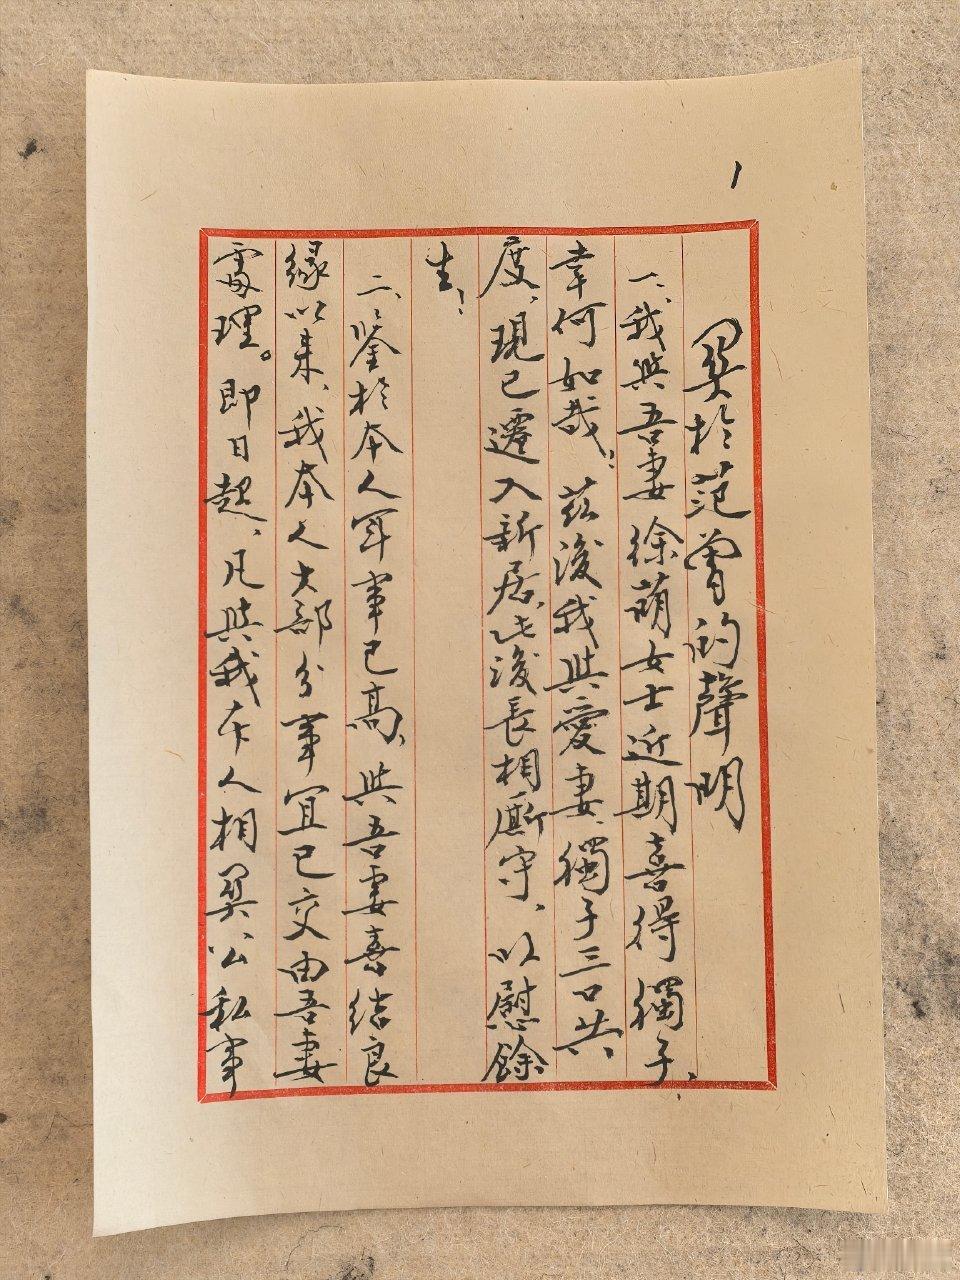 1
關於范曾的聲明
一、我與吾妻徐萌女士近期喜得獨子、
幸何如哉。茲後我與愛妻、獨子三口共
度、現已遷入新居、此後長相廝守、以慰餘
生！
二、鑒於本人年事已高、與吾妻喜結良
緣以來、我本人大部分事宜已交由吾妻
處理。即日起、凡與我本人相關公私事